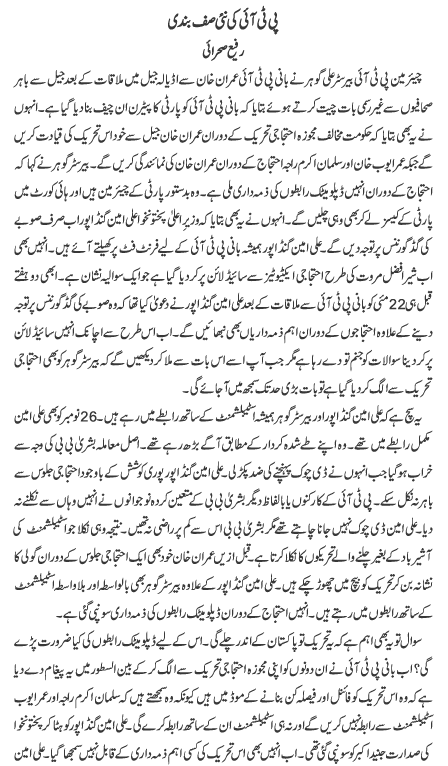 پی ٹی آئی کی نئی صف بندی
رفیع صحرائی
چیئرمین پی ٹی آئی بیرسٹر علی گوہر نے بانی پی ٹی آئی عمران خان سے اڈیالہ جیل میں ملاقات کے بعد جیل سے باہر
صحافیوں سے غیر رسمی بات چیت کرتے ہوئے بتایا کہ بانی پی ٹی آئی کو پارٹی کا پیٹرن ان چیف بنا دیا گیا ہے۔ انہوں
نے یہ بھی بتایا کہ حکومت مخالف مجوزہ احتجاجی تحریک کے دوران عمران خان جیل سے خود اس تحریک کی قیادت کریں
گے جبکہ عمر ایوب خان اور سلمان اکرم راجہ احتجاج کے دوران عمران خان کی نمائندگی کریں گے۔ بیرسٹر گوہر نے کہا کہ
احتجاج کے دوران انہیں ڈپلومیٹک رابطوں کی ذمہ داری ملی ہے۔ وہ بدستور پارٹی کے چیئرمین ہیں اور ہائی کورٹ میں
پارٹی کے کیسز لے کر بھی وہی چلیں گے۔ انہوں نے یہ بھی بتایا کہ وزیر اعلیٰ پختونخوا علی امین گنڈا پور اب صرف صوبے
کی گڈ گورننس پر توجہ دیں گے۔ علی امین گنڈا پور ہمیشہ بانی پی ٹی آئی کے لیے فرنٹ فٹ پر کھیلتے آئے ہیں۔ انہیں بھی
اب شیر افضل مروت کی طرح احتجاجی ایکٹیوٹیز سے سائیڈ لائن پر کر دیا گیا ہے جو ایک سوالیہ نشان ہے۔ ابھی دو ہفتے
قبل ہی 22 مئی کو بانی پی ٹی آئی سے ملاقات کے بعد علی امین گنڈا پور نے دعویٰ کیا تھا کہ وہ صوبے کی گڈ گورننس پر توجہ
دینے کے علاوہ احتجاجوں کے دوران اہم ذمہ داریاں بھی نبھائیں گے۔ اب اس طرح سے اچانک انہیں سائیڈ لائن
پر کر دینا سوالات کو جنم تو دے رہا ہے مگر جب آپ اسے اس بات سے ملا کر دیکھیں گے کہ بیرسٹر گوہر کو بھی احتجاجی
تحریک سے الگ کر دیا گیا ہے تو بات بڑی حد تک سمجھ میں آ جائے گی۔
یہ سچ ہے کہ علی امین گنڈا پور اور بیرسٹر گوہر ہمیشہ اسٹیبلشمنٹ کے ساتھ رابطے میں رہے ہیں۔ 26 نومبر کو بھی علی امین
مکمل رابطے میں تھے۔ وہ اپنے طے شدہ کردار کے مطابق آگے بڑھ رہے تھے۔ اصل معاملہ بشریٰ بی بی کی وجہ سے
خراب ہو گیا جب انہوں نے ڈی چوک پہنچنے کی ضد پکڑ لی۔ علی امین گنڈا پور پوری کوشش کے باوجود احتجاجی جلوس سے
باہر نہ نکل سکے۔ پی ٹی آئی کے کارکنوں یا بالفاظ دیگر بشریٰ بی بی کے متعین کردہ نوجوانوں نے انہیں وہاں سے نکلنے نہ
دیا۔ علی امین ڈی چوک نہیں جانا چاہتے تھے مگر بشریٰ بی بی اس سے کم پر راضی نہ تھیں۔ نتیجہ وہی نکلا جو اسٹیبلشمنٹ کی
آشیر باد کے بغیر چلنے والے تحریکوں کا نکلا کرتا ہے۔ قبل ازیں عمران خان خود بھی ایک احتجاجی جلوس کے دوران گولی کا
نشانہ بن کر تحریک کو بیچ میں چھوڑ چکے ہیں۔ علی امین گنڈا پور کے علاوہ بیرسٹر گوہر بھی بالواسطہ اور بلاواسطہ اسٹیبلشمنٹ
کے ساتھ رابطوں میں رہتے ہیں۔ انہیں احتجاج کے دوران ڈپلومیٹک رابطوں کی ذمہ داری سونپی گئی ہے۔
سوال تو یہ بھی اہم ہے کہ یہ تحریک تو پاکستان کے اندر چلے گی۔ اس کے لیے ڈپلومیٹک رابطوں کی کیا ضرورت پڑے
گی؟ اب بانی پی ٹی آئی نے ان دونوں کو اپنی مجوزہ احتجاجی تحریک سے الگ کر کے بین السطور میں یہ پیغام دے دیا
ہے کہ وہ اس تحریک کو فائنل اور فیصلہ کن بنانے کے موڈ میں ہیں کیونکہ وہ سمجھتے ہیں کہ سلمان اکرم راجہ اور عمر ایوب
اسٹیبلشمنٹ سے رابطہ نہیں کریں گے اور نہ ہی اسٹیبلشمنٹ ان کے ساتھ رابطہ کرے گی۔ علی امین گنڈا پور کو ہٹا کر پختونخوا
کی صدارت جنید اکبر کو سونپی گئی تھی۔ اب انہیں بھی اس تحریک کی کسی اہم ذمہ داری کے قابل نہیں سمجھا گیا۔ علی امین